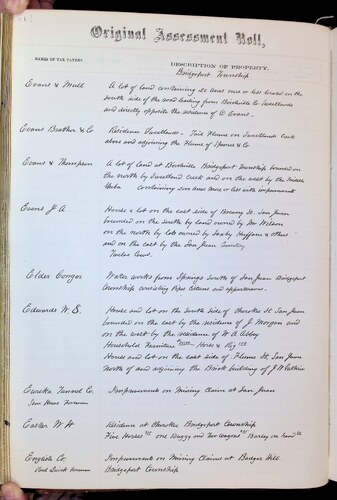 Original Assessment Roll,
NAMES OF TAX PAYERS
DESCRIPTION OF PROPERTY.
Bridgeport Township
Evans &
A lot of land containing 20 acres more or less located on the
south side of the road leading from Birchville to Sweetlands
and directly opposite the residence of C Evans.
Evans Brother & Co
Residence Sweetlands. Tail Flume on Sweetlands Creek
above and adjoining the Flume of Spence & Co
Evans & Thompson
A lot of land at Birchville Bridgeport Township bounded on
the north by Sweetland Creek and on the west by the Middle
Yuba containing acres more or less with improvements
Evans J A
House & lot on the east side of St. San Juan
bounded on the south by land owned by Wm Wilson
on the north by lots owned by & others
and on the east by the San Juan
Elder Conger
Water works from Springs South of San Juan Bridgeport
Township consisting Pipes Cisterns and appurtenances.
Edwards W. S.
House and lot on the south side of St San Juan
bounded on the east by the residence of J Morgan and
on the west by the residence of W A Abbey
Household Furniture Horse & Rig
House and lot on the east side of Flume St. San Juan
north of and adjoining the Brick building of J
Eureka Tunnel Co
Foreman
Improvement on Mining Claim at San Juan
W H
Residence at Cherokee Bridgeport Township
Five Horses one Buggy and two wagons Barley on hand
English Co.
Foreman
Improvement on Mining Claims at Badger Hill
Bridgeport Township